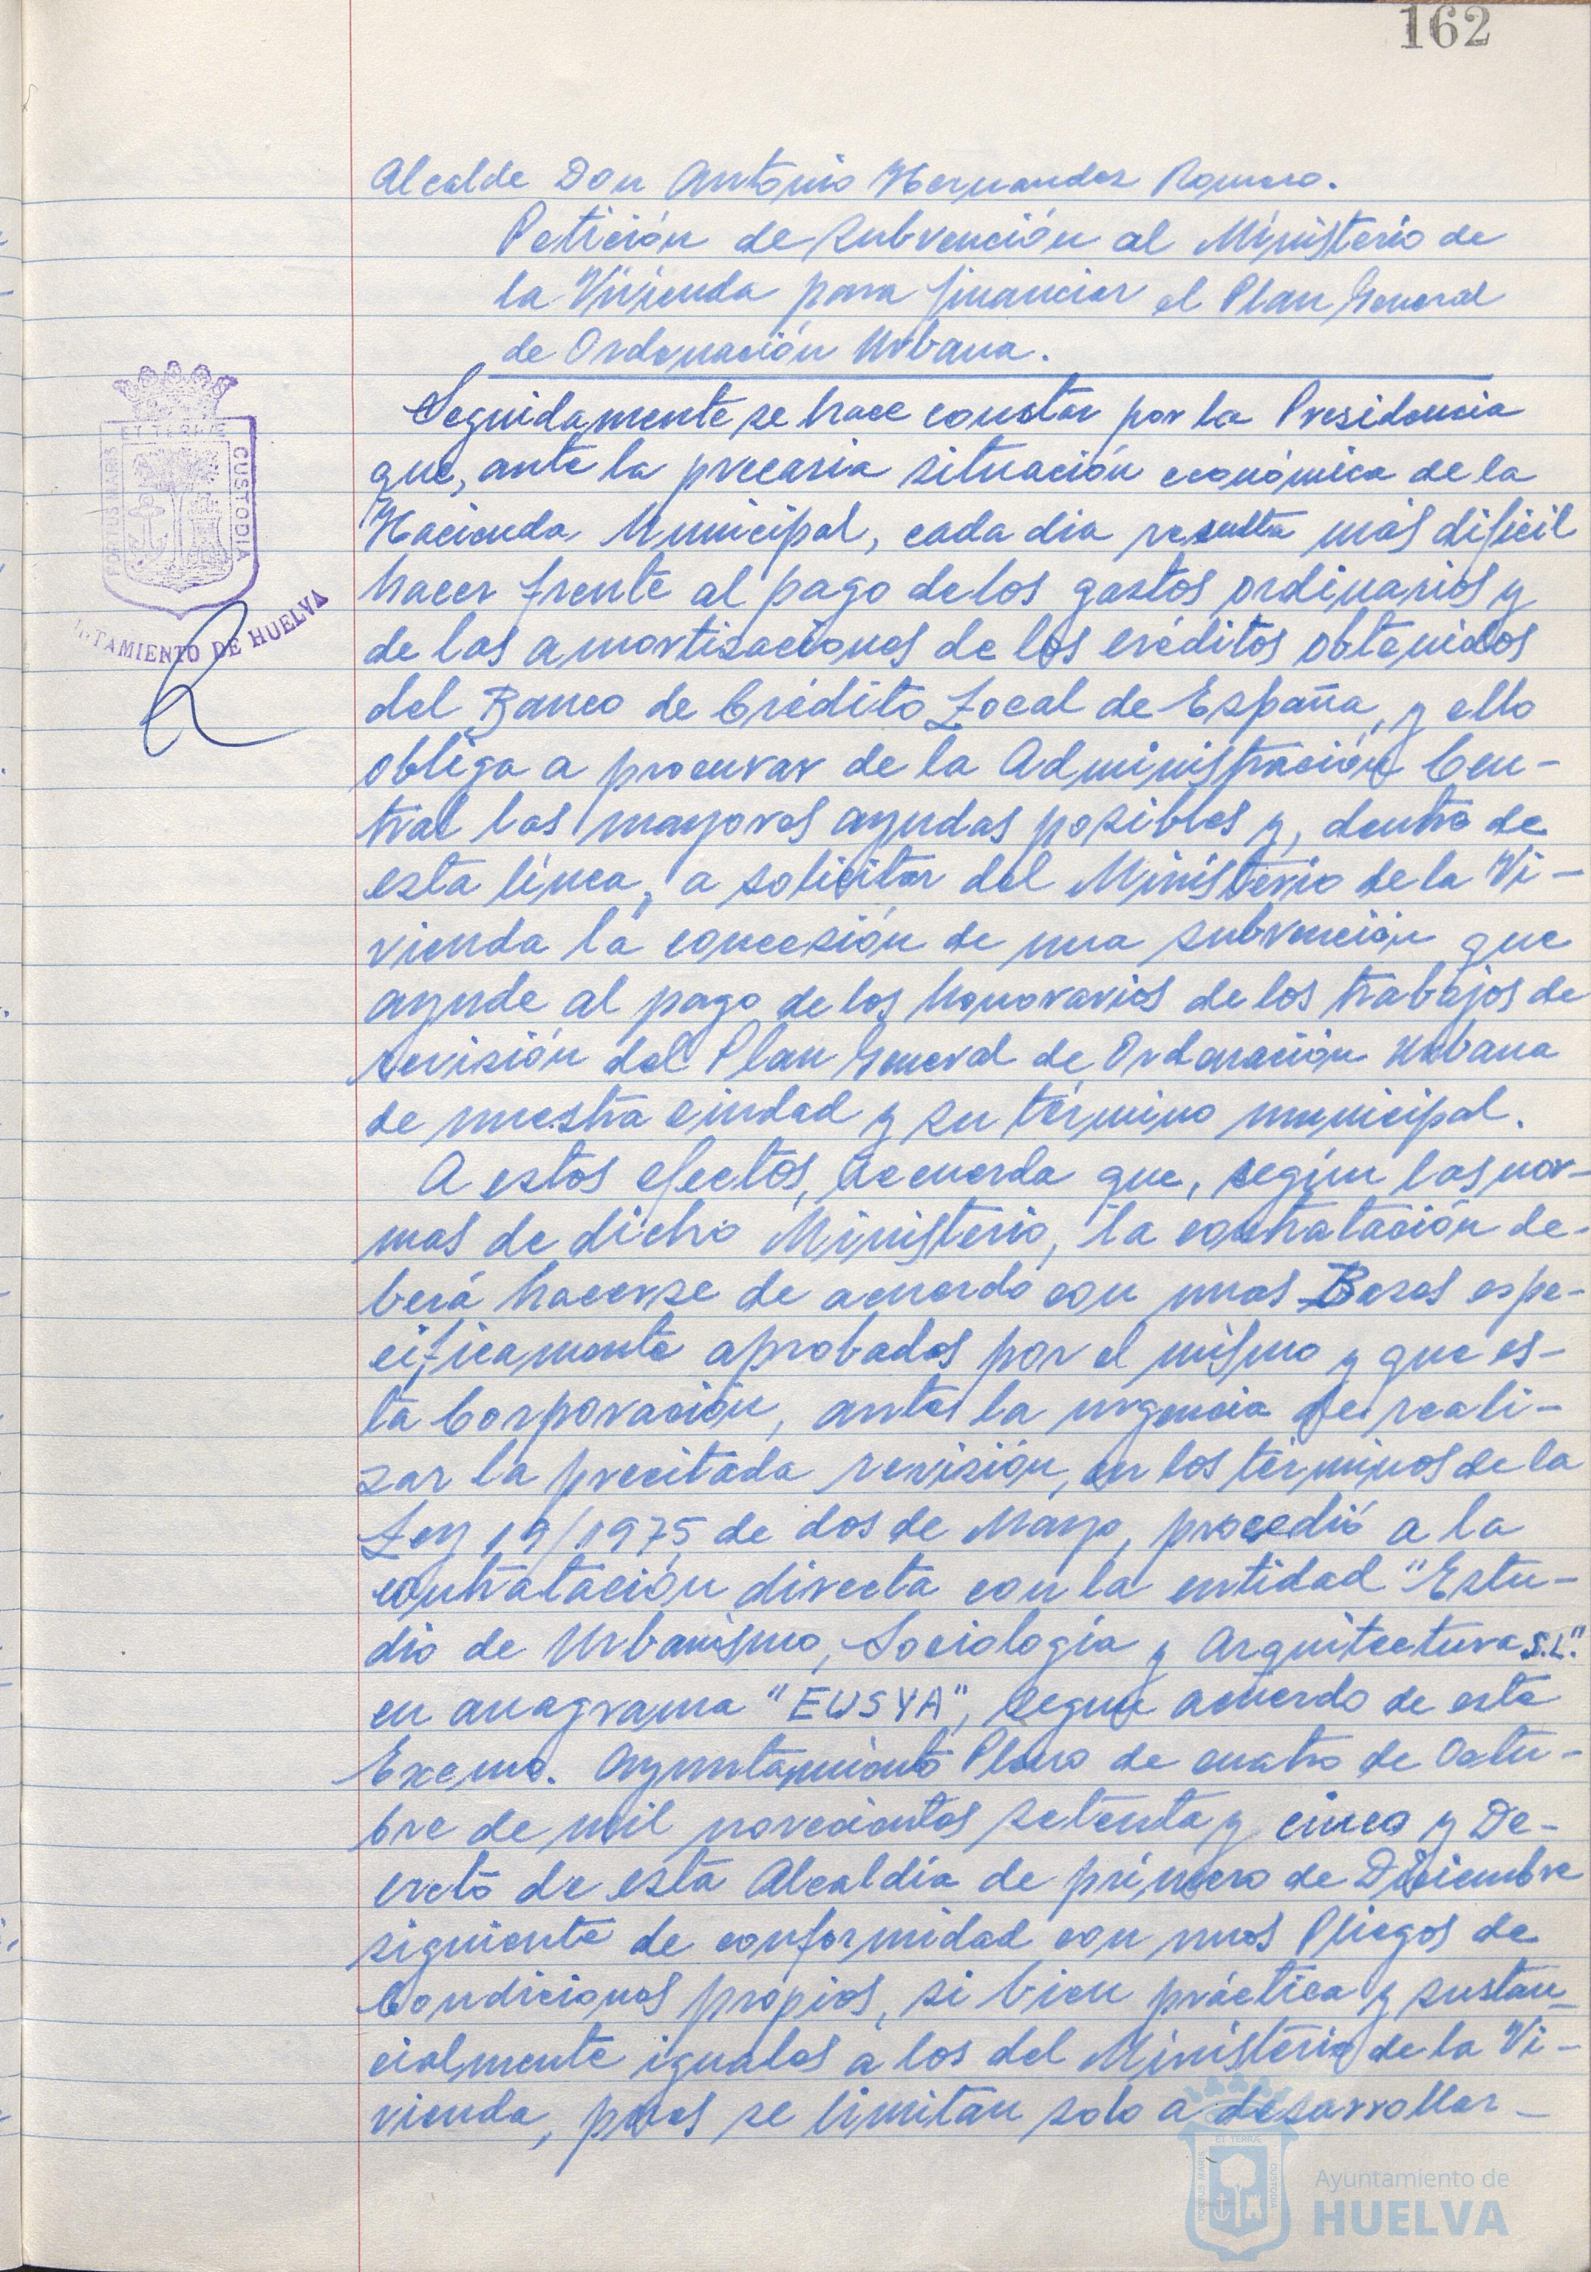 162
Alcalde Don Antonio Hernandez Romero.
Petición de subvención al Ministerio de
la Vivienda para financiar el Plan General
de Ordenación Urbana.
Seguidamente se hace constar por la Presidencia
que, ante la precaria situación económica de la
Hacienda Municipal, cada dia resulta más dificil
hacer frente al pago de los gastos ordinarios y
de las amortizaciones de los créditos obtenidos
del Banco de Crédito Local de España, y ello
obliga a procurar de la Administración Cen-
tral las mayores ayudas posibles y, dentro de
esta línea, a solicitar del Ministerio de la Vi-
vienda la concesión de una subvención que
ayude al pago de los honorarios de los trabajos de
revisión del Plan General de Ordenación Urbana
de nuestra ciudad y su término municipal.
A estos efectos, acuerda que, según las nor-
mas de dicho Ministerio, la contratación de-
berá hacerse de acuerdo con unas Bases espe-
cificamente aprobadas por el mismo y que es-
ta Corporación, ante la urgencia de reali-
zar la precitada revisión, en los términos de la
Ley 19/1975 de dos de Mayo, procedió a la
contratación directa con la entidad "Estu-
dio de Urbanismo, Sociología y Arquitectura S.L."
en anagrama "EUSYA", según acuerdo de este
Excmo. Ayuntamiento Pleno de cuatro de Octu-
bre de mil novecientos setenta y cinco y De-
creto de esta Alcaldía de primero de Diciembre
siguiente de conformidad con unos Pliegos de
Condiciones propios, si bien práctica y sustan-
cialmente iguales a los del Ministerio de la Vi-
vienda, pues se limitan solo a desarrollar-
PORTUS MARIS
ET TERRAE
CUSTODIA
TAMIENTO DE HUELVA
PORTUS MARIS
ET TERRAE
CUSTODIA
Ayuntamiento de
HUELVA